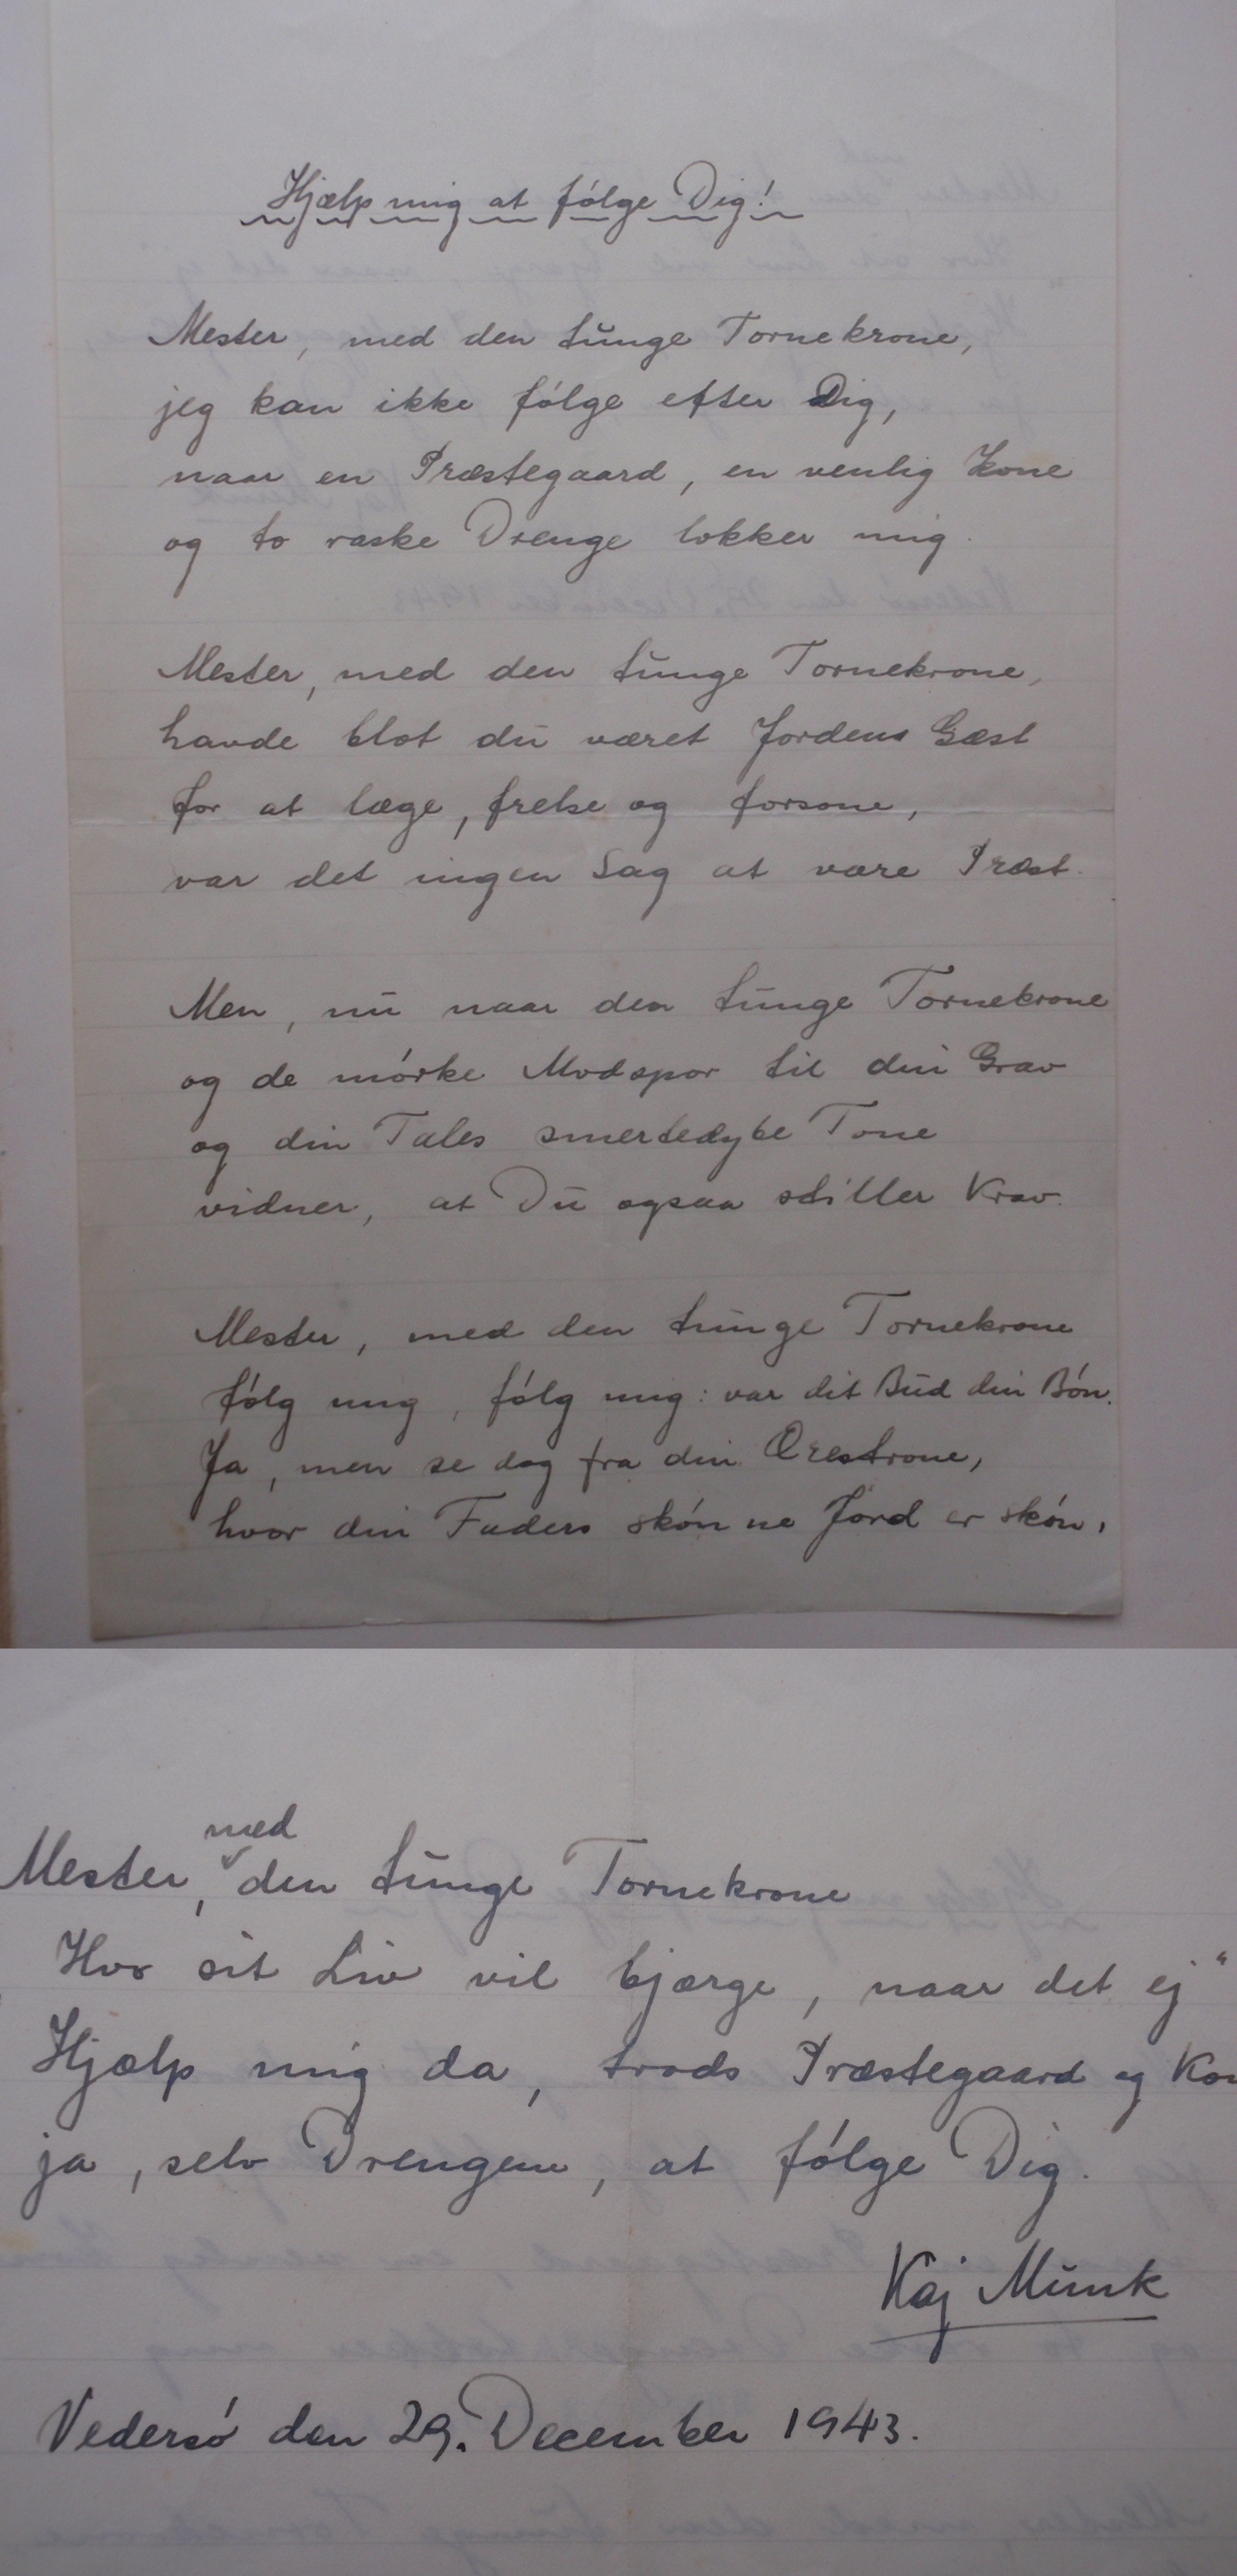 Hjælp mig at følge Dig!
Mester, med den tunge Tornekrone,
jeg kan ikke følge efter Dig,
naar en Præstegaard, en venlig Kone
og to raske Drenge lokker mig.
Mester, med den tunge Tornekrone,
havde blot du været Jordens Gæst
for at læge, frelse og forsone,
var det ingen Sag at være Præst.
Men, nu naar den tunge Tornekrone
og de mørke Modspor til din Grav
og din Tales smertedybe Tone
vidner, at Du ogsaa stiller Krav.
Mester, med den tunge Tornekrone
følg mig, følg mig: var dit Bud din Bøn.
Ja, men se dog fra din Ærestrone,
hvor din Faders skønne Jord er skøn,
med
Mester, den tunge Tornekrone
Hvo sit Liv vil bjærge, naar det ej"
Hjælp mig da, trods Præstegaard og Kon
ja, selv Drengene, at følge Dig.
Kaj Munk
Vedersø den 29. December 1943.